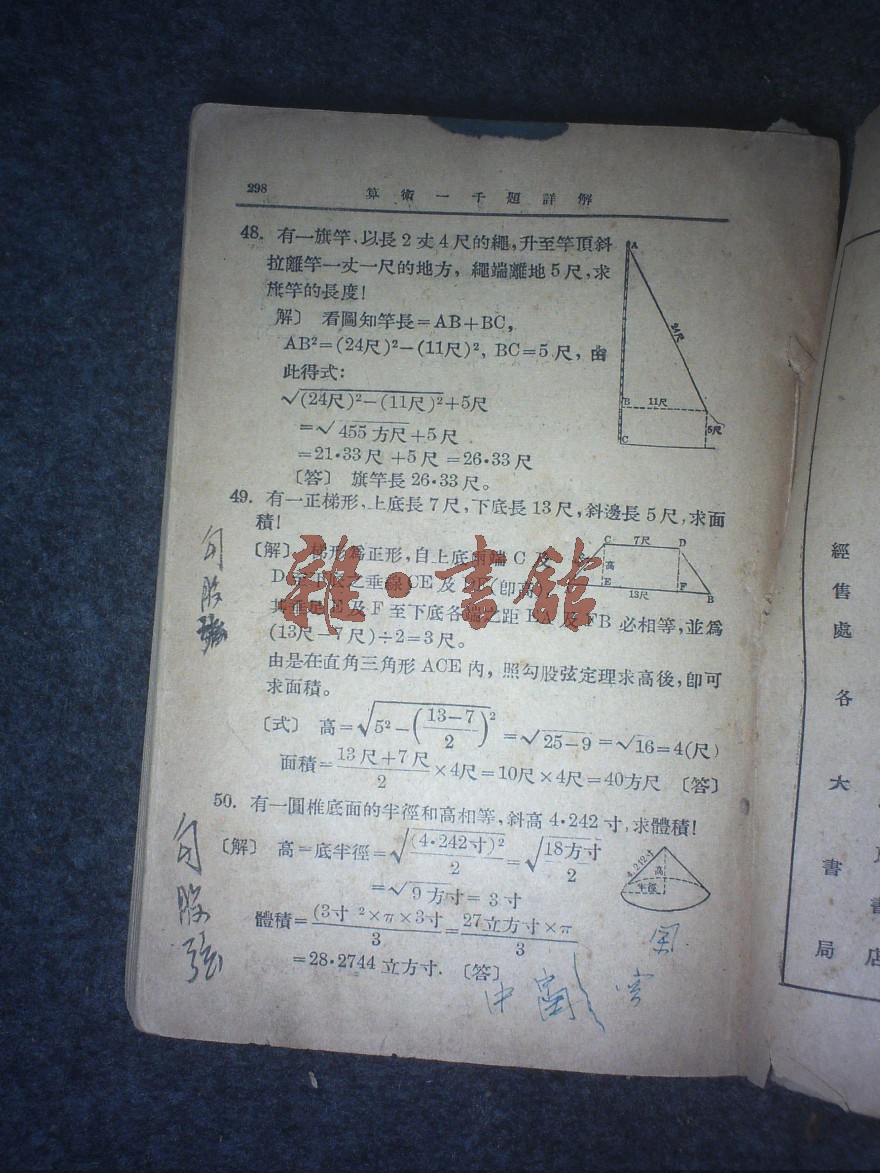 298
算術一千題詳解
48. 有一旗竿、以長2丈4尺的繩,升至竿頂斜
拉離竿一丈一尺的地方, 繩端離地5尺,求
旗竿的長度!
解〕 看圖知竿長=AB+BC,
AB²=(24尺)²-(11尺)², BC=5尺, 由
此得式:
√(24尺)²-(11尺)²+5尺
=√455方尺+5尺
=21·33尺+5尺=26·33尺
〔答〕 旗竿長26·33尺。
A
24尺
B 11尺
5尺
C
49. 有一正梯形,上底長7尺,下底長13尺,斜邊長5尺,求面
積!
〔解〕 梯形爲正形,自上底兩端C及
D 之垂線CE及DF(卽高)
其垂足E及F至下底各端之距EA及FB必相等,並爲
(13尺-7尺)÷2=3尺。
由是在直角三角形ACE內, 照勾股弦定理求高後,卽可
求面積。
〔式〕 高=√5²-(13-7/2)²=√25-9=√16=4(尺)
面積=13尺+7尺/2×4尺=10尺×4尺=40方尺 〔答〕
C 7尺 D
高
E F
13尺 B
50. 有一圓椎底面的半徑和高相等,斜高4·242寸,求體積!
〔解〕 高=底半徑=√(4·242寸)²/2=√18方寸/2
=√9方寸=3寸
體積=(3寸²×π×3寸/3=27立方寸×π/3
=28·2744立方寸. 〔答〕
4.242寸
高
半徑
勾股
勾股弦
中
雜·書館
經售處 各大書局
店